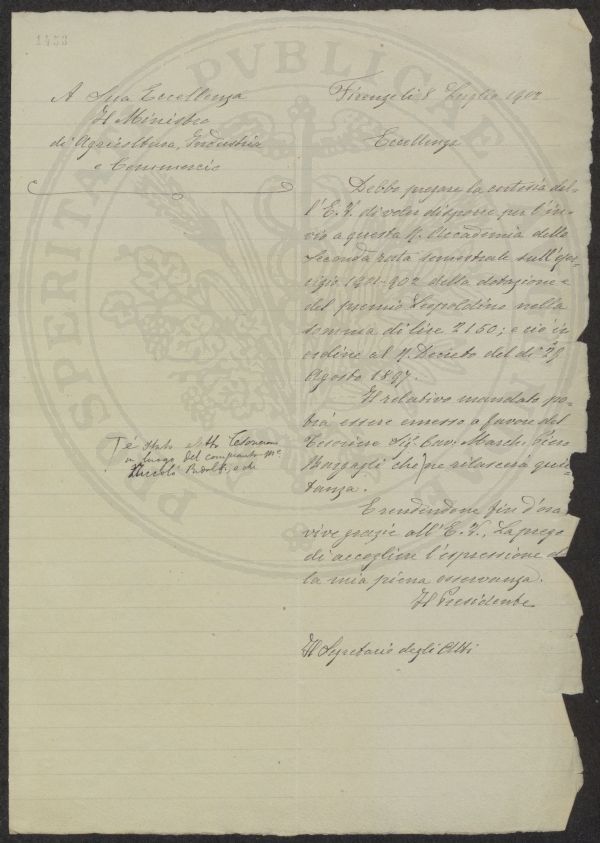 1453
A Sua Eccellenza
Il Ministro
di Agricoltura, Industria
e Commercio
Firenze li 8 Luglio 1902
Eccellenza
Debbo pregare la cortesia del-
l'E. V. di voler disporre per l'in-
vio a questa R. Accademia della
seconda rata semestrale sull'eser-
cizio 1901-902 della dotazione e
del premio Leopoldino nella
somma di lire 2160; e ciò in
ordine al R. Decreto del dì 29
Agosto 1897.
Il relativo mandato po-
trà essere emesso a favore del
Tesoriere Sig. Cav. March. Piero
Bargagli che ne rilascerà quie-
tanza.
è stato eletto Tesoriere
in luogo del compianto Mse
Niccolò Ridolfi, e che
E rendendone fin d'ora
vive grazie all'E. V., La prego
di accogliere l'espressione
la mia piena osservanza.
Il Presidente
Il Segretario degli Atti
PROSPERITATI PVBLICAE